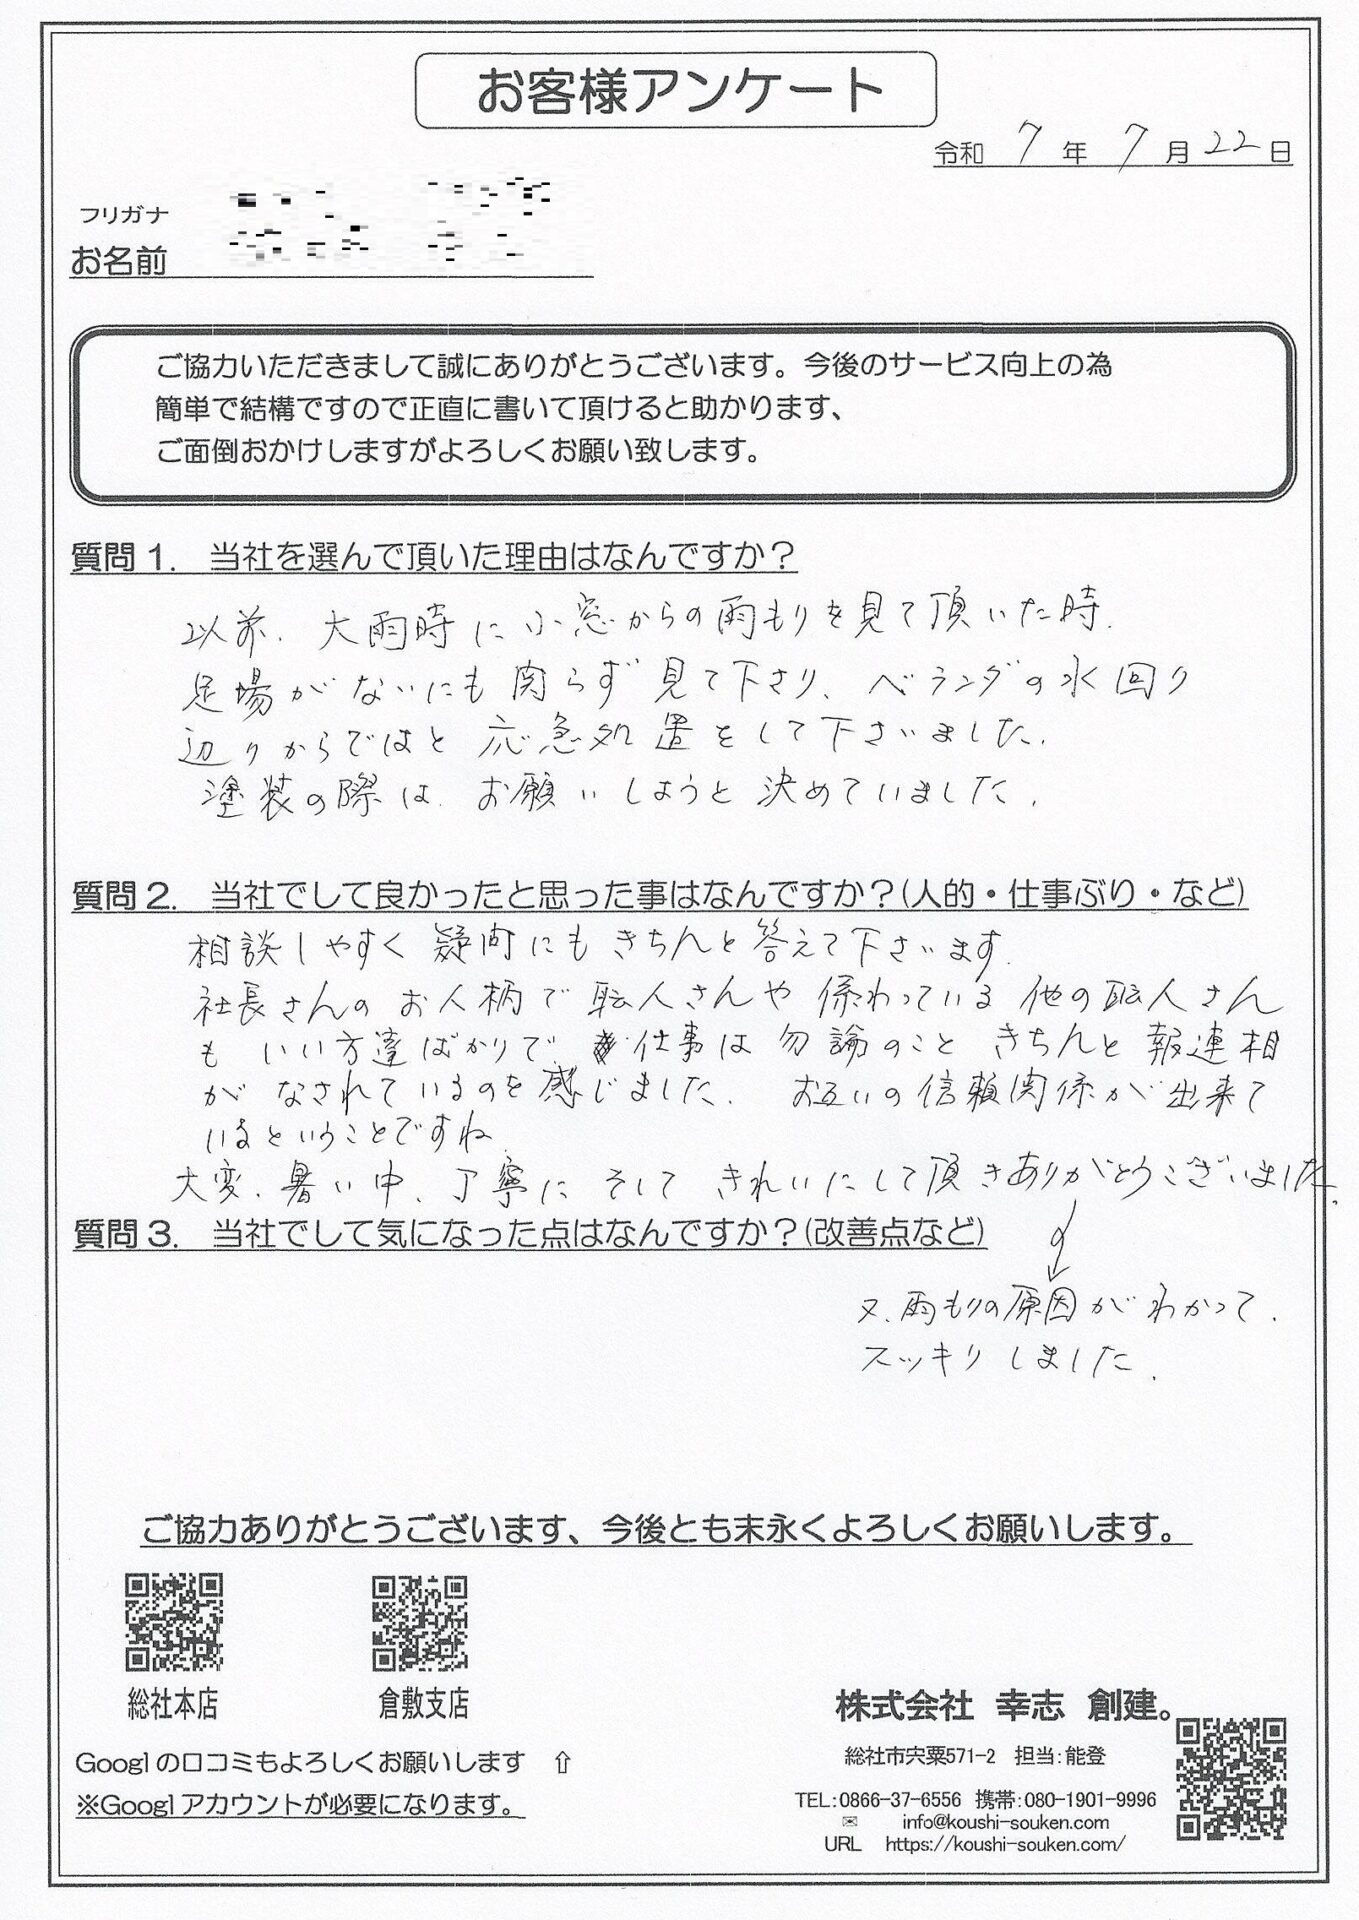 お客様アンケート
令和 7 年 7 月 22 日
フリガナ
お名前
ご協力いただきまして誠にありがとうございます。今後のサービス向上の為
簡単で結構ですので正直に書いて頂けると助かります、
ご面倒おかけしますがよろしくお願い致します。
質問1. 当社を選んで頂いた理由はなんですか?
以前、大雨時に小窓からの雨もりを見て頂いた時、
足場がないにも関らず見て下さり、ベランダの水回り
辺りからではと応急処置をして下さいました。
塗装の際は、お願いしようと決めていました。
質問2. 当社でして良かったと思った事はなんですか?(人的・仕事ぶり・など)
相談しやすく疑問にもきちんと答えて下さいます。
社長さんのお人柄で職人さんや係わっている他の職人さん
もいい方達ばかりで、仕事は勿論のこときちんと報連相
がなされているのを感じました。お互いの信頼関係が出来て
いるということですね
大変、暑い中、丁寧にそしてきれいにして頂きありがとうございました。
質問3. 当社でして気になった点はなんですか?(改善点など)
又、雨もりの原因がわかって、
スッキリしました。
ご協力ありがとうございます、今後とも末永くよろしくお願いします。
総社本店 倉敷支店
Googlの口コミもよろしくお願いします ⇧
※Googlアカウントが必要になります。
株式会社 幸志 創建。
総社市宍粟571-2 担当:能登
TEL:0866-37-6556 携帯:080-1901-9996
✉ info@koushi-souken.com
URL https://koushi-souken.com/